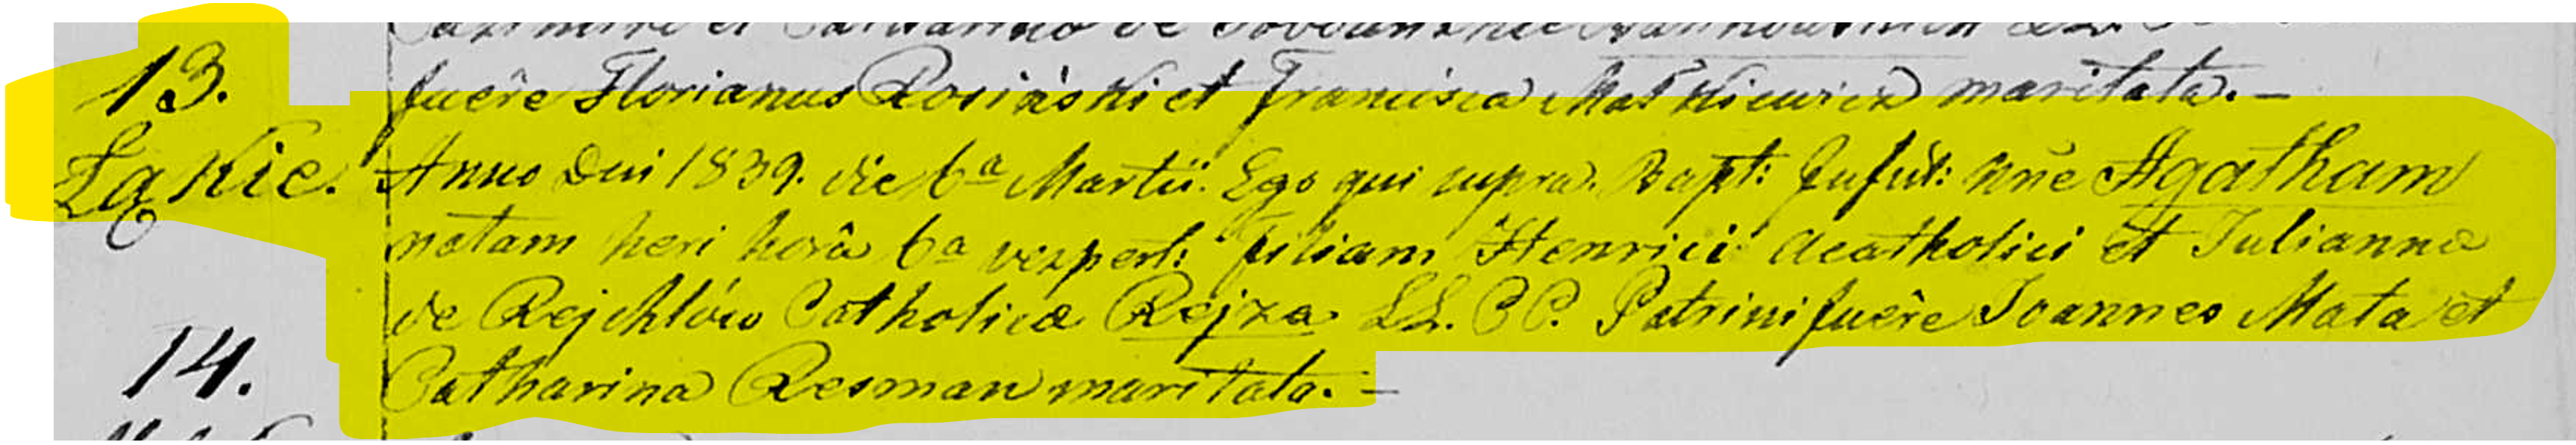 fuêre Florianus Rosiński et Francisca Matkiewicz maritata. —
13.
Łąkie.
Anno Dni 1839. die 6a Martii. Ego qui supra. Bapt: Infut: nñe Agatham
natam heri horâ 6a vespert: filiam Henrici acatholici et Julianna
de Rejchlów Catholicæ Rejza LL. CC. Patrini fuêre Joannes Mata et
14.
Catharina Resman maritata. —